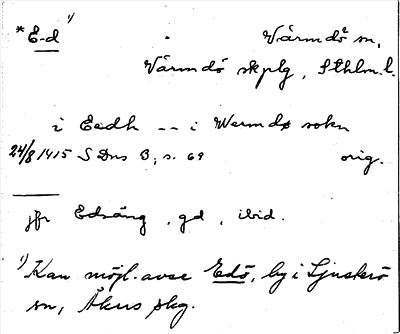 *E-d 1) Värmdö sn,
Värmdö skplg, Sthlm.l.
i Eedh -- i Wermdø sokn
24/8 1415 SDns B, s. 69 orig.
jfr Edsäng, gd, ibid.
1) Kan möjl. avse Edö, by i Ljusterö
sn, Åkers skg.